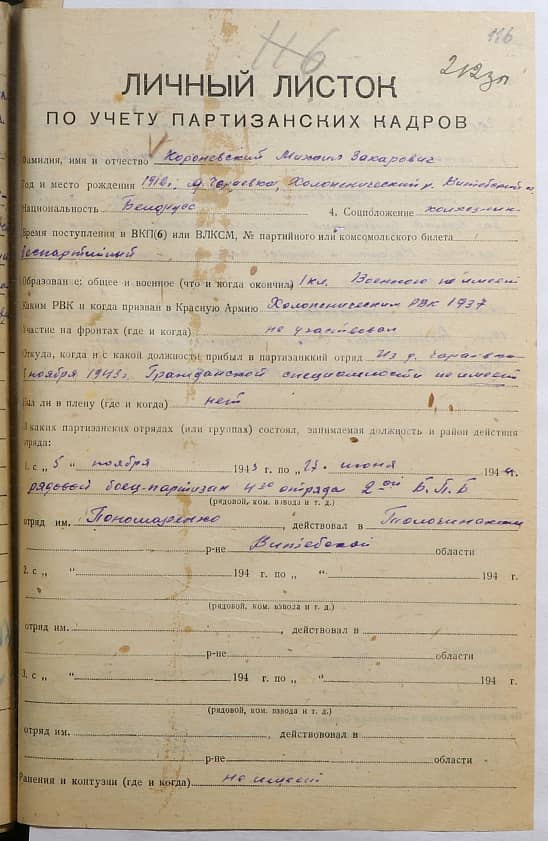 116
146
212зп
ЛИЧНЫЙ ЛИСТОК
ПО УЧЕТУ ПАРТИЗАНСКИХ КАДРОВ
Фамилия, имя и отчество Короневский Михаил Захарович
Год и место рождения 1916 г. д. Холопенический р. Витебской
Национальность Белорус 4. Соцположение колхозник
Время поступления в ВКП(б) или ВЛКСМ, № партийного или комсомольского билета
беспартийный
Образован е; общее и военное (что и когда окончил) 1 кл. Военного не имеет
Каким РВК и когда призван в Красную Армию Холопеническим РВК 1937
Участие на фронтах (где и когда) не участвовал
Откуда, когда и с какой должности прибыл в партизанкий отряд Из д.
5 ноября 1943 г. Гражданской специальности не имеет
Был ли в плену (где и когда) нет
В каких партизанских отрядах (или группах) состоял, занимаемая должность и район действия
отряда:
1. с „ 5 “ ноября 1943 г. по „ 27 “ июня 1944 г.
рядовой боец-партизан 430 отряда 2ой Б.П.Б
(рядовой, ком. взвода и т. д.)
отряд им. Пономаренко, действовал в Толочинском
р-не Витебской области
2. с „ “ 194 г. по „ “ 194 г.
(рядовой, ком. взвода и т. д.)
отряд им. , действовал в
р-не области
3. с „ “ 194 г. по „ “ 194 г.
(рядовой, ком. взвода и т. д.)
отряд им. , действовал в
р-не области
Ранения и контузии (где и когда) не имеет